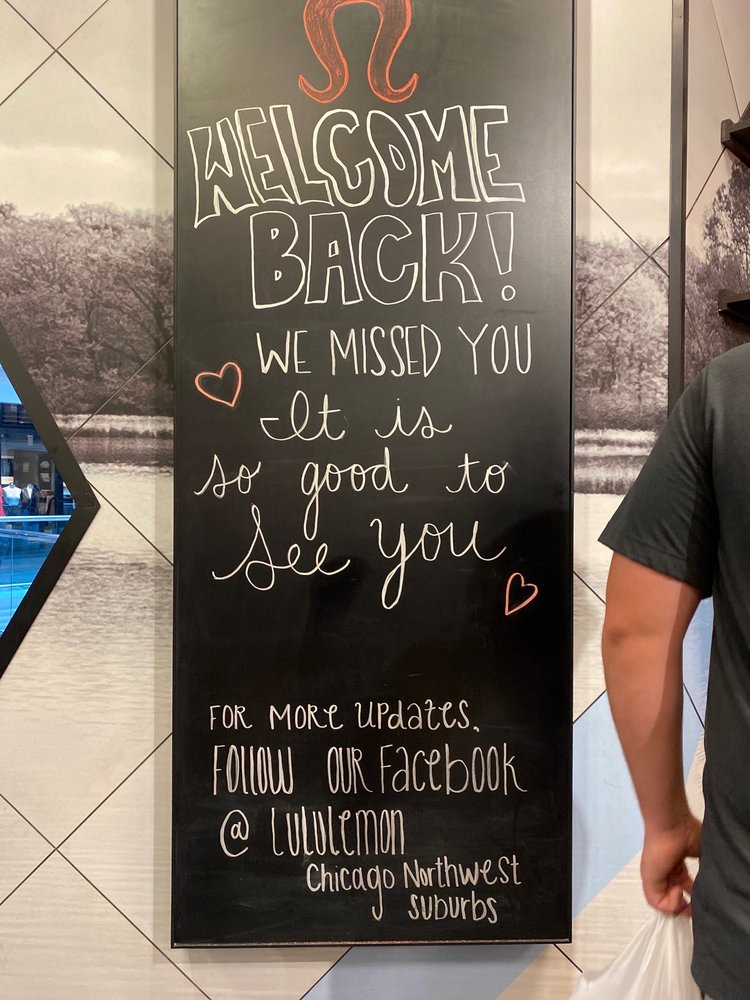 WELCOME
BACK!
WE MISSED YOU
It is
so good to
see you
FOR MORE UPdates.
FOLLOW OUR Facebook
@ LULULEMON
Chicago Northwest
suburbs